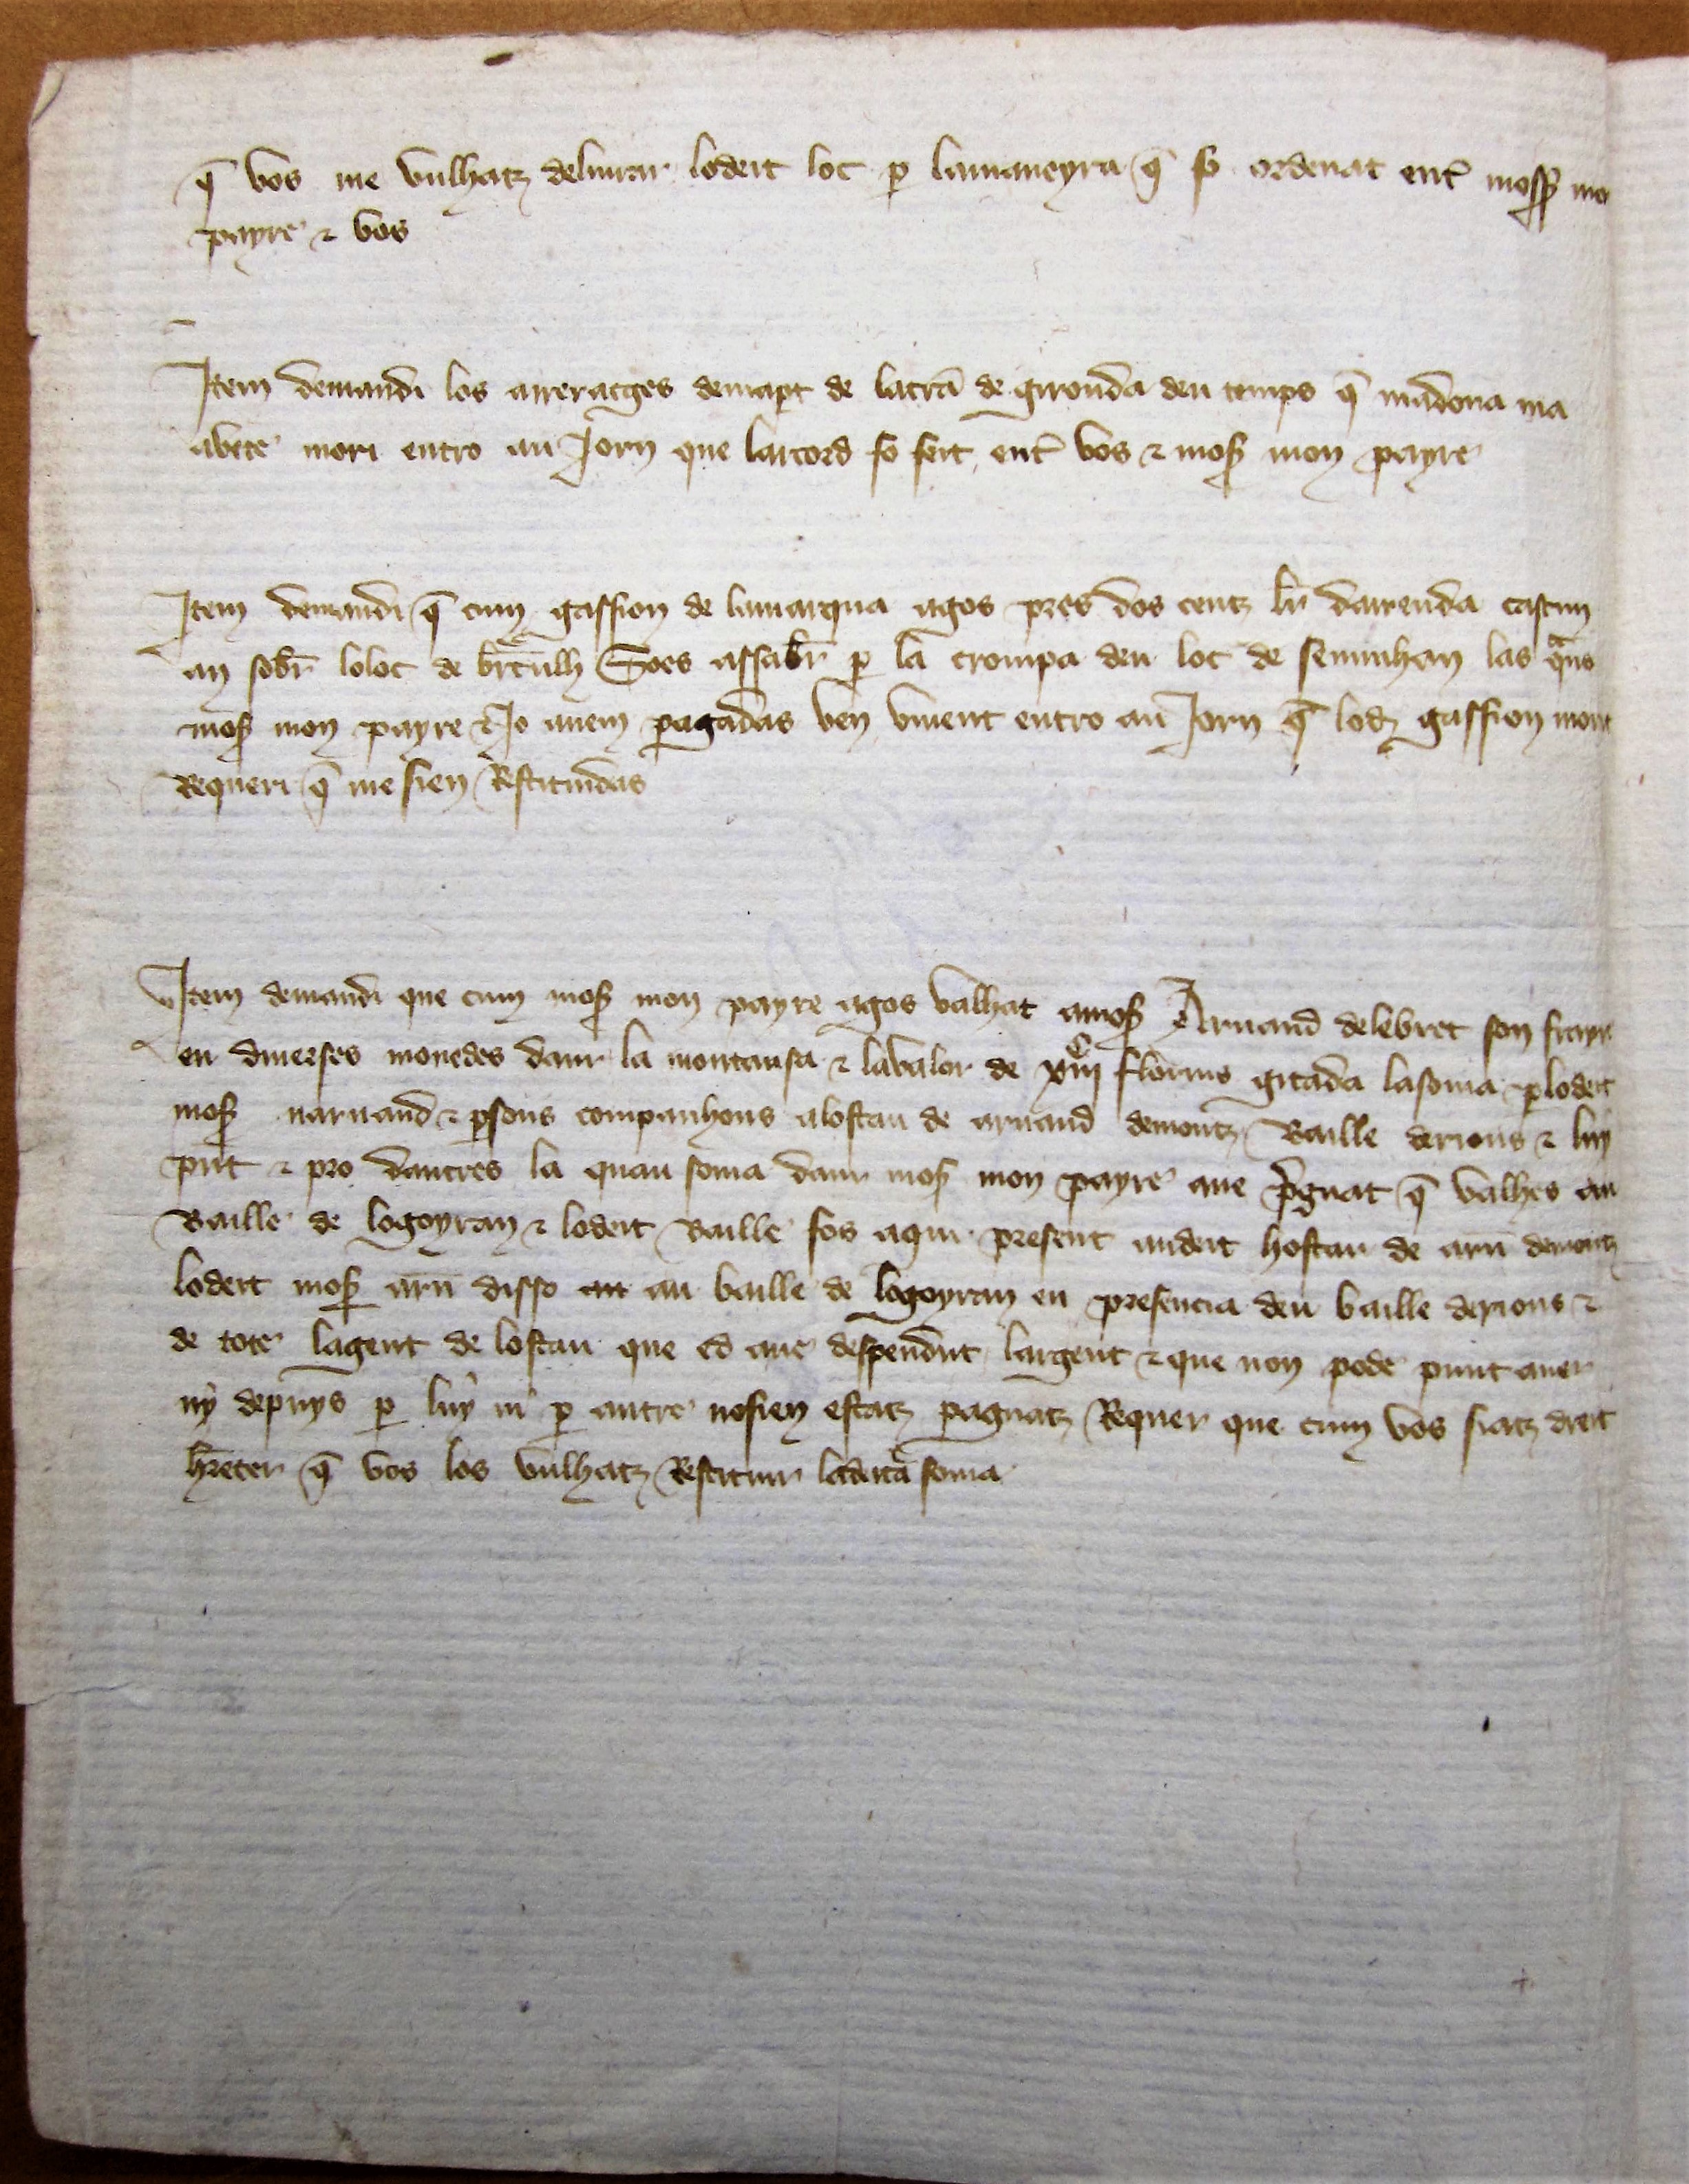 q̄ vos me vulhatz deliurar lodeit loc ꝑ lamaneyra q̄ fo ordenat ent̄ mosꝭ mo
payre ⁊ vos
Item demandi los arreratges demapt de latrā de gironda deu temps q̄ madona ma
abete mori entro au jorn que lacord fo feit ent̄ vos ⁊ mosꝭ mon payre
Item demandi q̄ cum gassion de lamarqua agos pres dos centz lr̄ darrenda cascun
an sobr̄ loloc de Soes assabr̄ ꝑ la crompa deu loc de seminhan las q̄ns
mosꝭ mon payre ⁊ Jo auem pagadas ben vment entro au jorn q̄ lodz gassion mori
Requeri q̄ me sien Restituidas
Item demandi que cum mosꝭ mon payre agos balhat amosꝭ Arnaud delebret son frayre
en diuerses monedes daur la montansa ⁊ labalor de florins gitada lasoma ꝑlodeit
mosꝭ narnaud ⁊ ꝑsons companhons alostau de arnaud demontz Baille derions ⁊ luy
pn̄t ⁊ pro dautres la quau soma daur mosꝭ mon payre aue q̄ balhes au
Baille de logoyran ⁊ lodeit Baille fos aqui present audeit hostau de arn̄ demontz
lodeit mosꝭ arn̄ disso au baille de logoyran en presencia deu baille derions ⁊
de tote lagent de lostau que ed aue despendut largent ⁊ que non pode punt auer
ny depuys ꝑ luy ni ꝑ autre nosien estatz pagnatz Requer que cum vos siatz dreit
hr̄eter q̄ vos los vulhatz Restituir ladeita soma